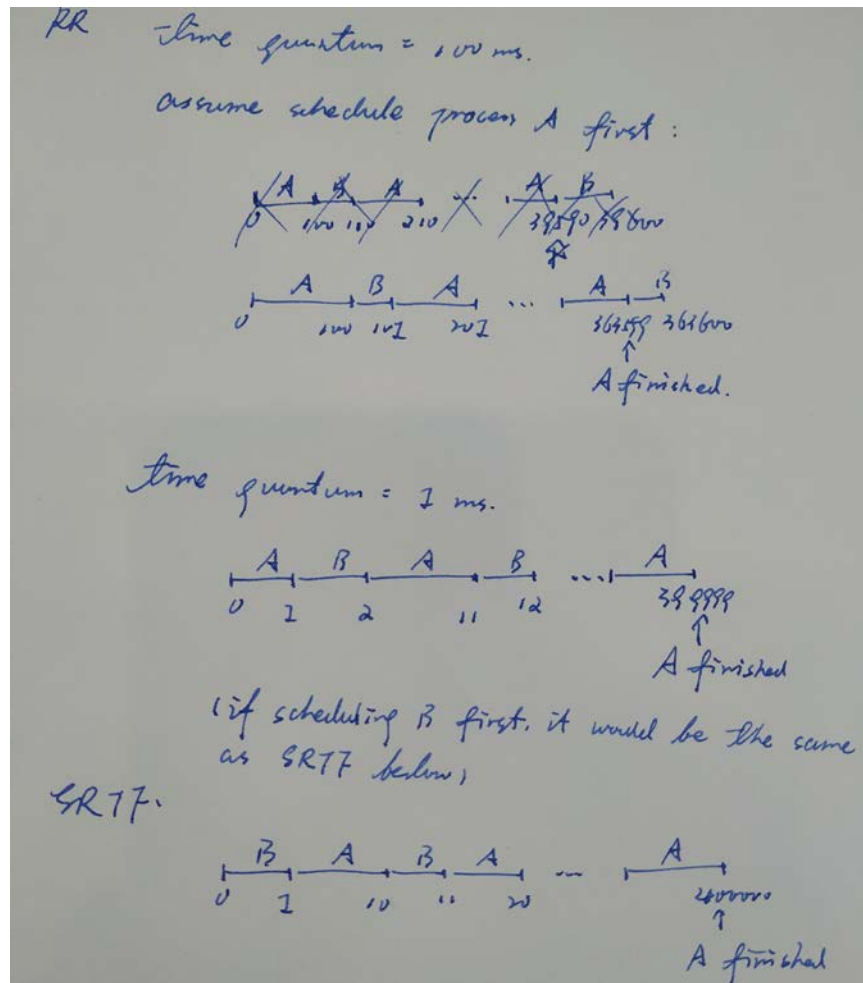 RR time quantum = 100 ms.
assume schedule process A first:
A B A ... A B
0 100 110 210 39590 39600
A B A ... A B
0 100 101 201 363599 363600
↑
A finished.
time quantum = 1 ms.
A B A B ... A
0 1 2 11 12 399999
↑
A finished
(if scheduling B first, it would be the same
as SRTF below)
SRTF.
B A B A ... A
0 1 10 11 20 400000
↑
A finished